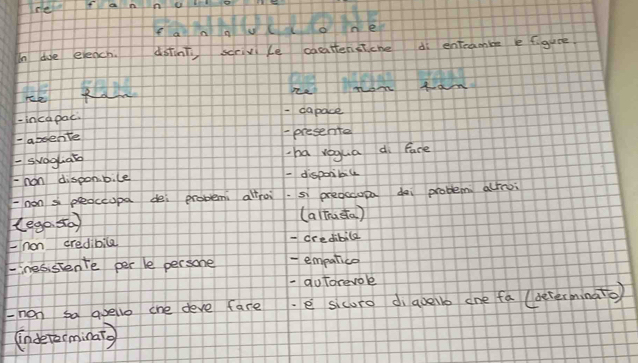 re fannullone
fannullone
In due elench. distinti, scrivi le caratteristiche di entrambe e figure.
Re fan Re non fan
-incapaci - capace
-assente -presente
-svogliato -ha voglia di fare
-non disponibile - disponibile
-non si preoccupa dei problemi altrui - si preoccupa dei problemi altrui
(egoista) (altruista)
-non credibile - credibile
-inesistente per le persone - empatico
- autorevole
-non sa quello che deve fare - è sicuro di quello che fa (determinato)
(indeterminato)